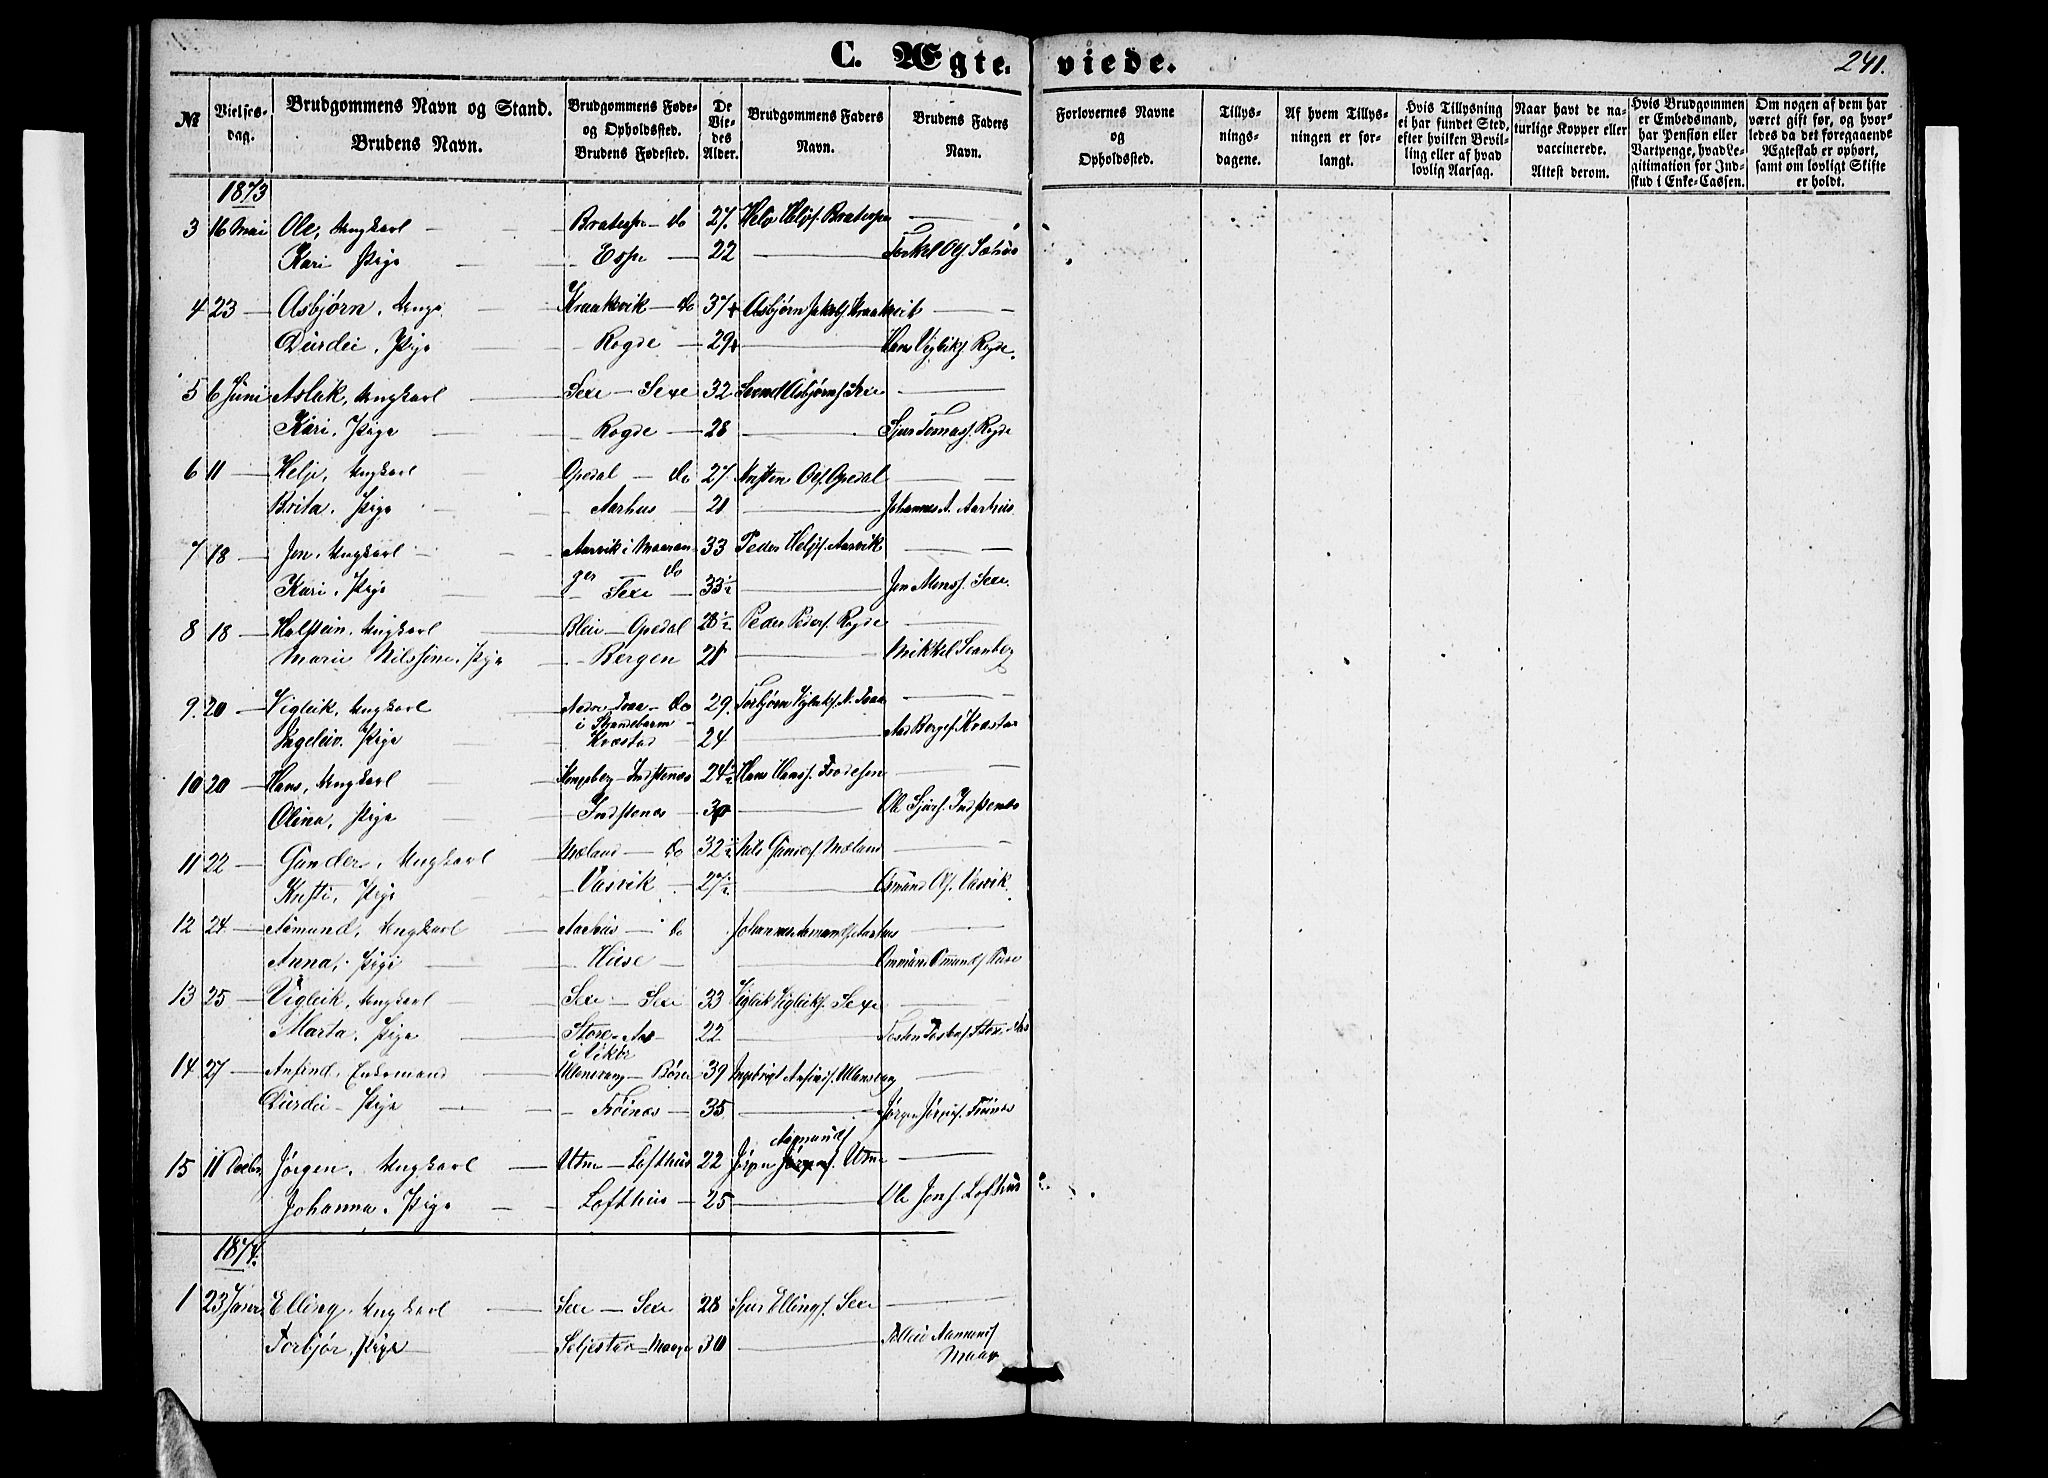 C. Ægte-
viede.
241.
№
Vielses-
dag.
Brudgommens Navn og Stand.
Brudens Navn.
Brudgommens Føde-
og Opholdssted.
Brudens Fødested.
De
Vie-
des
Alder.
Brudgommens Faders
Navn.
Brudens Faders
Navn.
Forlovernes Navne
og
Opholdssted.
Tillys-
nings-
dagene.
Af hvem Tillys-
ningen er for-
langt.
Hvis Tillysning
ei har fundet Sted,
efter hvilken Bevil-
ling eller af hvad
lovlig Aarsag.
Naar havt de na-
turlige Kopper eller
vaccinerede.
Attest derom.
Hvis Brudgommen
er Embedsmand,
har Pension eller
Vartpenge, hvad Le-
gitimation for Ind-
skud i Enke-Cassen.
Om nogen af dem har
været gift før, og hvor-
ledes da det foregaaende
Ægteskab er ophørt,
samt om lovligt Skifte
er holdt.
1873
3 16 Mai Ole, Ungkarl Bratespe - do 27. Bratespe
Kari Pige Espe 22
4 23 Asbjørn, Ungk Kraakevik - do 37 Asbjørn Jakobs. Kraakevik
Durdei, Pige Rogde 29 Hans Vigleiks. Rogde.
5 6 Juni Aslak, Ungkarl Sexe - Sexe 32 Svend Asbjørns. Sexe
Kari, Pige Rogde 28 Sjur Tomas. Rogde
6 11 Helje, Ungkarl Opedal - do 27 Kristen Ols. Opedal
Brita, Pige Aarhus 21 Johannes A. Aarhus
7 18 Jon, Ungkarl Aarvik i Mauran- 33 Peder Heljes. Aarvik
ger do
Kari, Pige Sexe 33½ Jon Mons. Sexe
8 18 Halstein, Ungkarl Bleie - Opedal 28½ Peder Peders. Rogde
Marie Nilssine, Pige Bergen 21 Mikkel
9. 20 Vigleik, Ungkarl Nedre Traa - do 29. Torbjørn Vigleiks. N. Traa
i Strandebarm
Ingeleiv. Pige Kvæstad 24
10 20 Hans, Ungkarl Indstenæs 24½ Hans Hans.
Olina, Pige Indstenæs 30 Ole Sjurs. Indstenæs
11 22 Gunder, Ungkarl Mæland - do 32½ Nils Gunders. Mæland
Kristi, Pige Vasvik 27½ Osmund Ols. Vasvik.
12 24 Aamund, Ungkarl Aarhus - do Johannes Aamunds. Aarhus
Anna, Pige Huse
13 25 Vigleik, Ungkarl Sexe - Sexe 33 Vigleik Vigleiks. Sexe
Marta, Pige Store-Aas 22
i Vikør
14 27 Anfind, Enkemand Ullensvang - Børve 39 Ingebrigt Anfinds. Ullensvang
Durdei - Pige Frøinæs 35 Jørgen Jørgens. Frøinæs
Aamunds.
15 11 Decbr. Jørgen, Ungkarl Utne - Lofthus 22 Jørgen Utne
Johanna, Pige Lofthus 25 Ole Jons. Lofthus
1874.
1 23 Januar Elling, Ungkarl Sexe - Sexe 28 Sjur Ellings. Sexe
Torbjør, Pige Seljestad - Mauge 30 Tolleiv Aamunds.